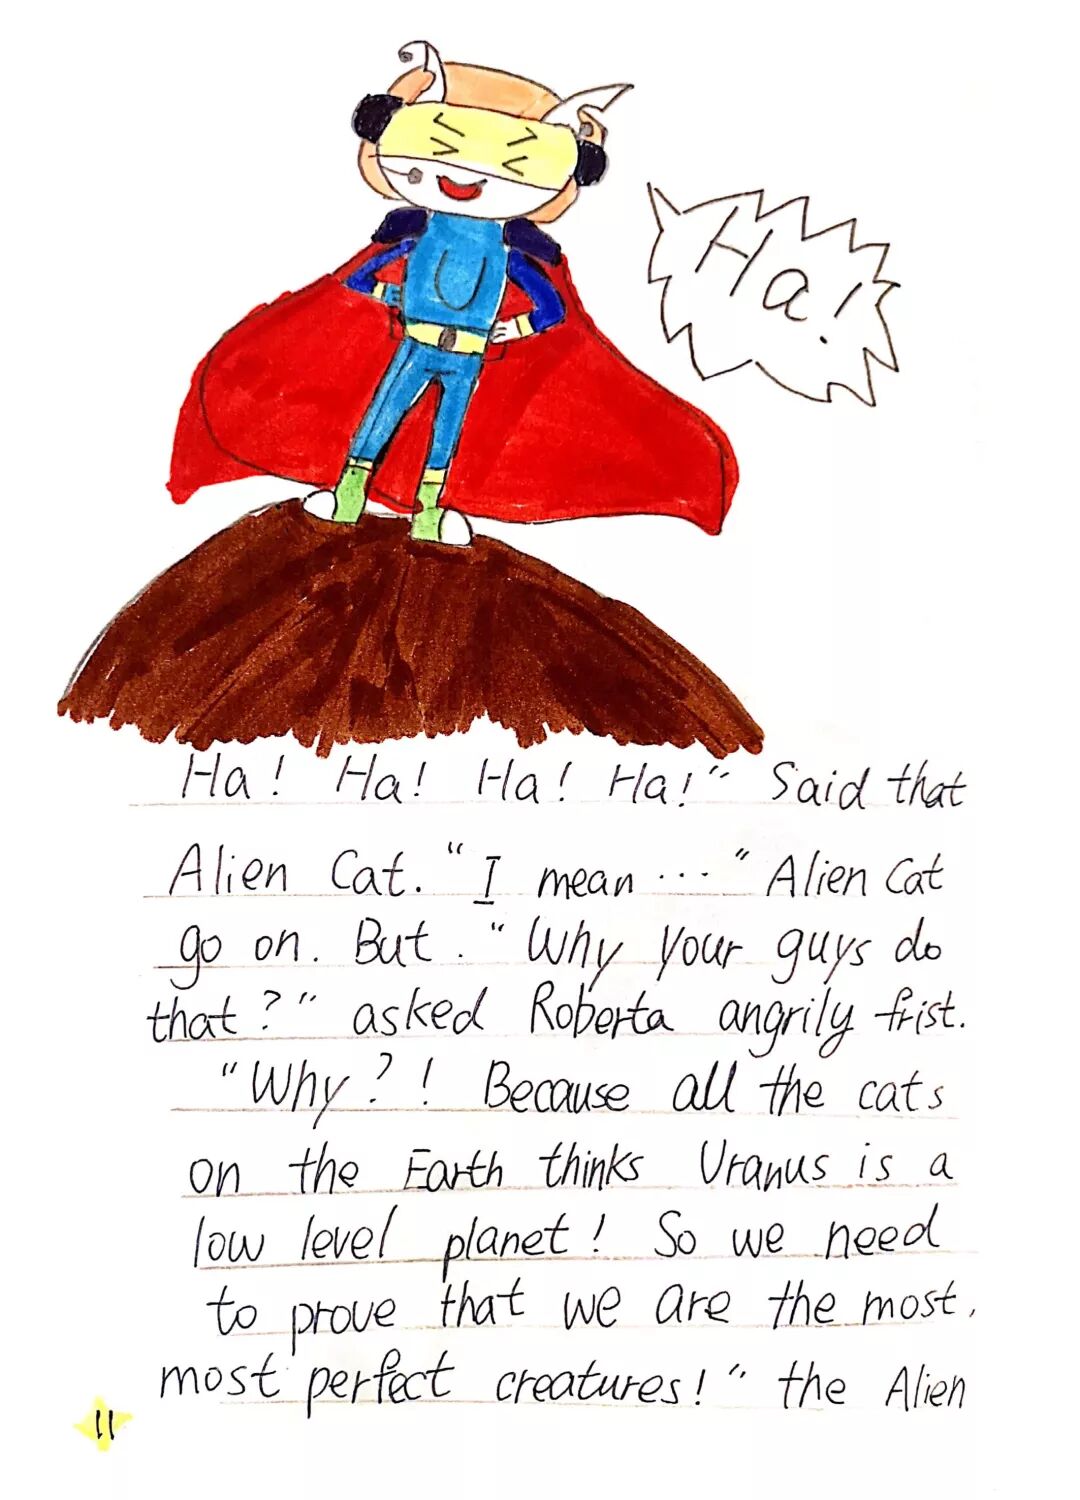 Ha!
Ha! Ha! Ha! Ha!" Said that
Alien Cat. "I mean ... " Alien Cat
go on. But. "Why your guys do
that?" asked Roberta angrily frist.
"Why?! Because all the cats
on the Earth thinks Uranus is a
low level planet! So we need
to prove that we are the most,
most perfect creatures!" the Alien
11